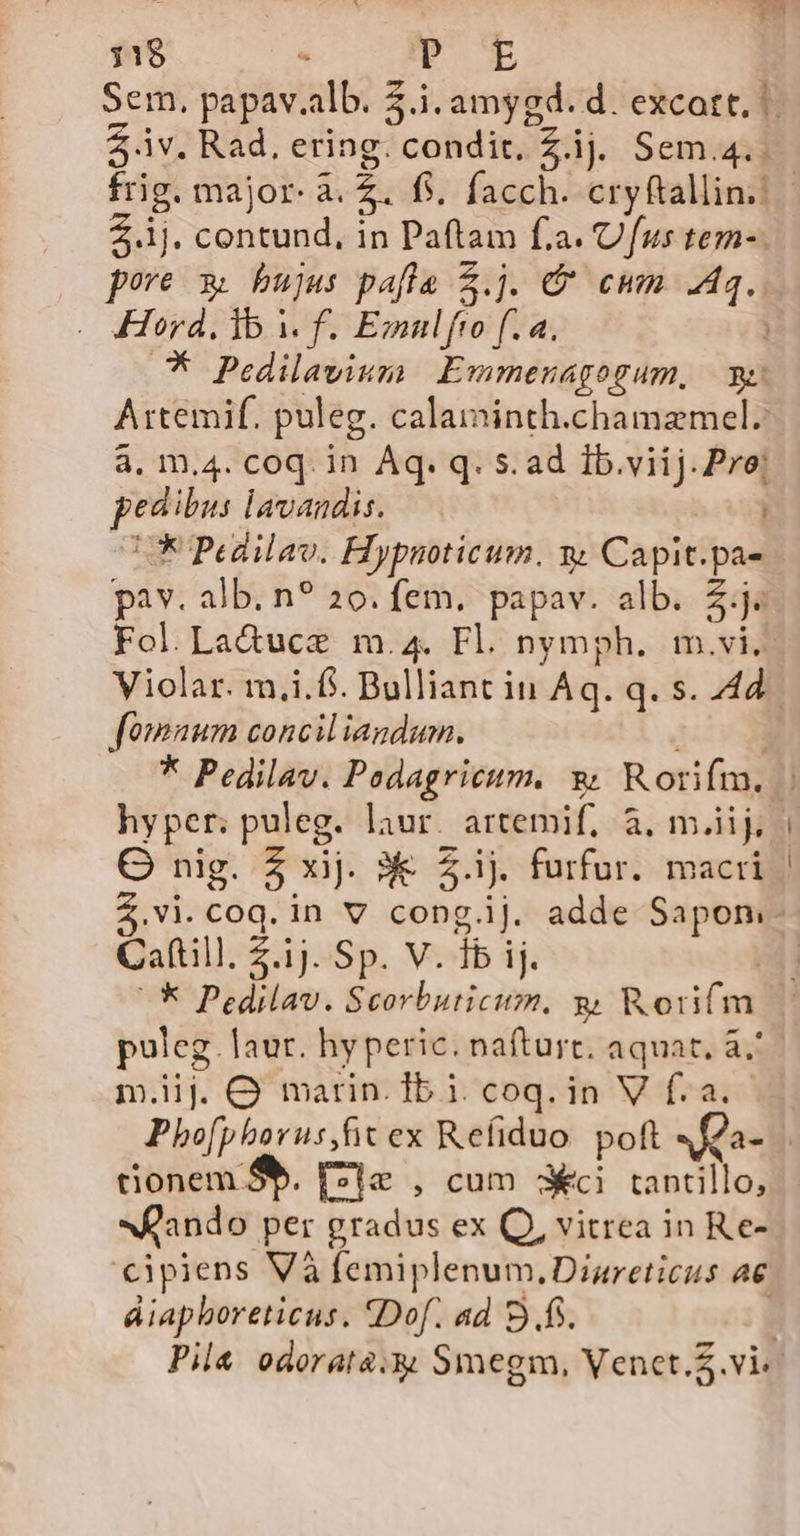 118 P E
Sem. papav.alb. ℥.i. amygd. d. excort.
℥.iv. Rad. ering. condit. ℥.ij. Sem.4.
frig. major. ā. ℥. ß. ſacch. cryſtallin.
℥.ij. contund. in Paſtam ſ.a. Uſus tem-
pore ℞ hujus paſtæ ℥.j. & cum Aq.
Hord. ℔ i. f. Emulſio ſ. a.
* Pedilavium Emmenagogum. ℞
Artemiſ. puleg. calaminth.chamæmel.
ā. m.4. coq. in Aq. q. s. ad ℔.viij. Pro
pedibus lavandis.
* Pedilav. Hypnoticum. ℞ Capit.pa-
pav. alb. nº 20. ſem. papav. alb. ℥.j.
Fol. Lactucæ m.4. Fl. nymph. m.vi.
Violar. m.i.ß. Bulliant in Aq. q. s. Ad
ſomnum conciliandum.
* Pedilav. Podagricum. ℞ Roriſm.
hyper. puleg. laur. artemiſ. ā. m.iij.
🜔 nig. ℥ xij. ✱ ℥.ij. furfur. macri
℥.vi. coq. in ▽ cong.ij. adde Sapon.
Caſtill. ℥.ij. Sp. V. ℔ ij.
* Pedilav. Scorbuticum. ℞ Roriſm
puleg. laur. hyperic. naſturt. aquat. ā.
m.iij. 🜔 marin. ℔ i. coq. in ▽ ſ. a.
Phoſphorus, fit ex Reſiduo poſt
tionem Sp. , cum ✱ci tantillo,
ando per gradus ex vitrea in Re-
cipiens ▽â ſemiplenum. Diureticus ac
diaphoreticus. Doſ. ad ℈.ß.
Pilæ odoratæ. ℞ Smegm. Venet.℥.vi.